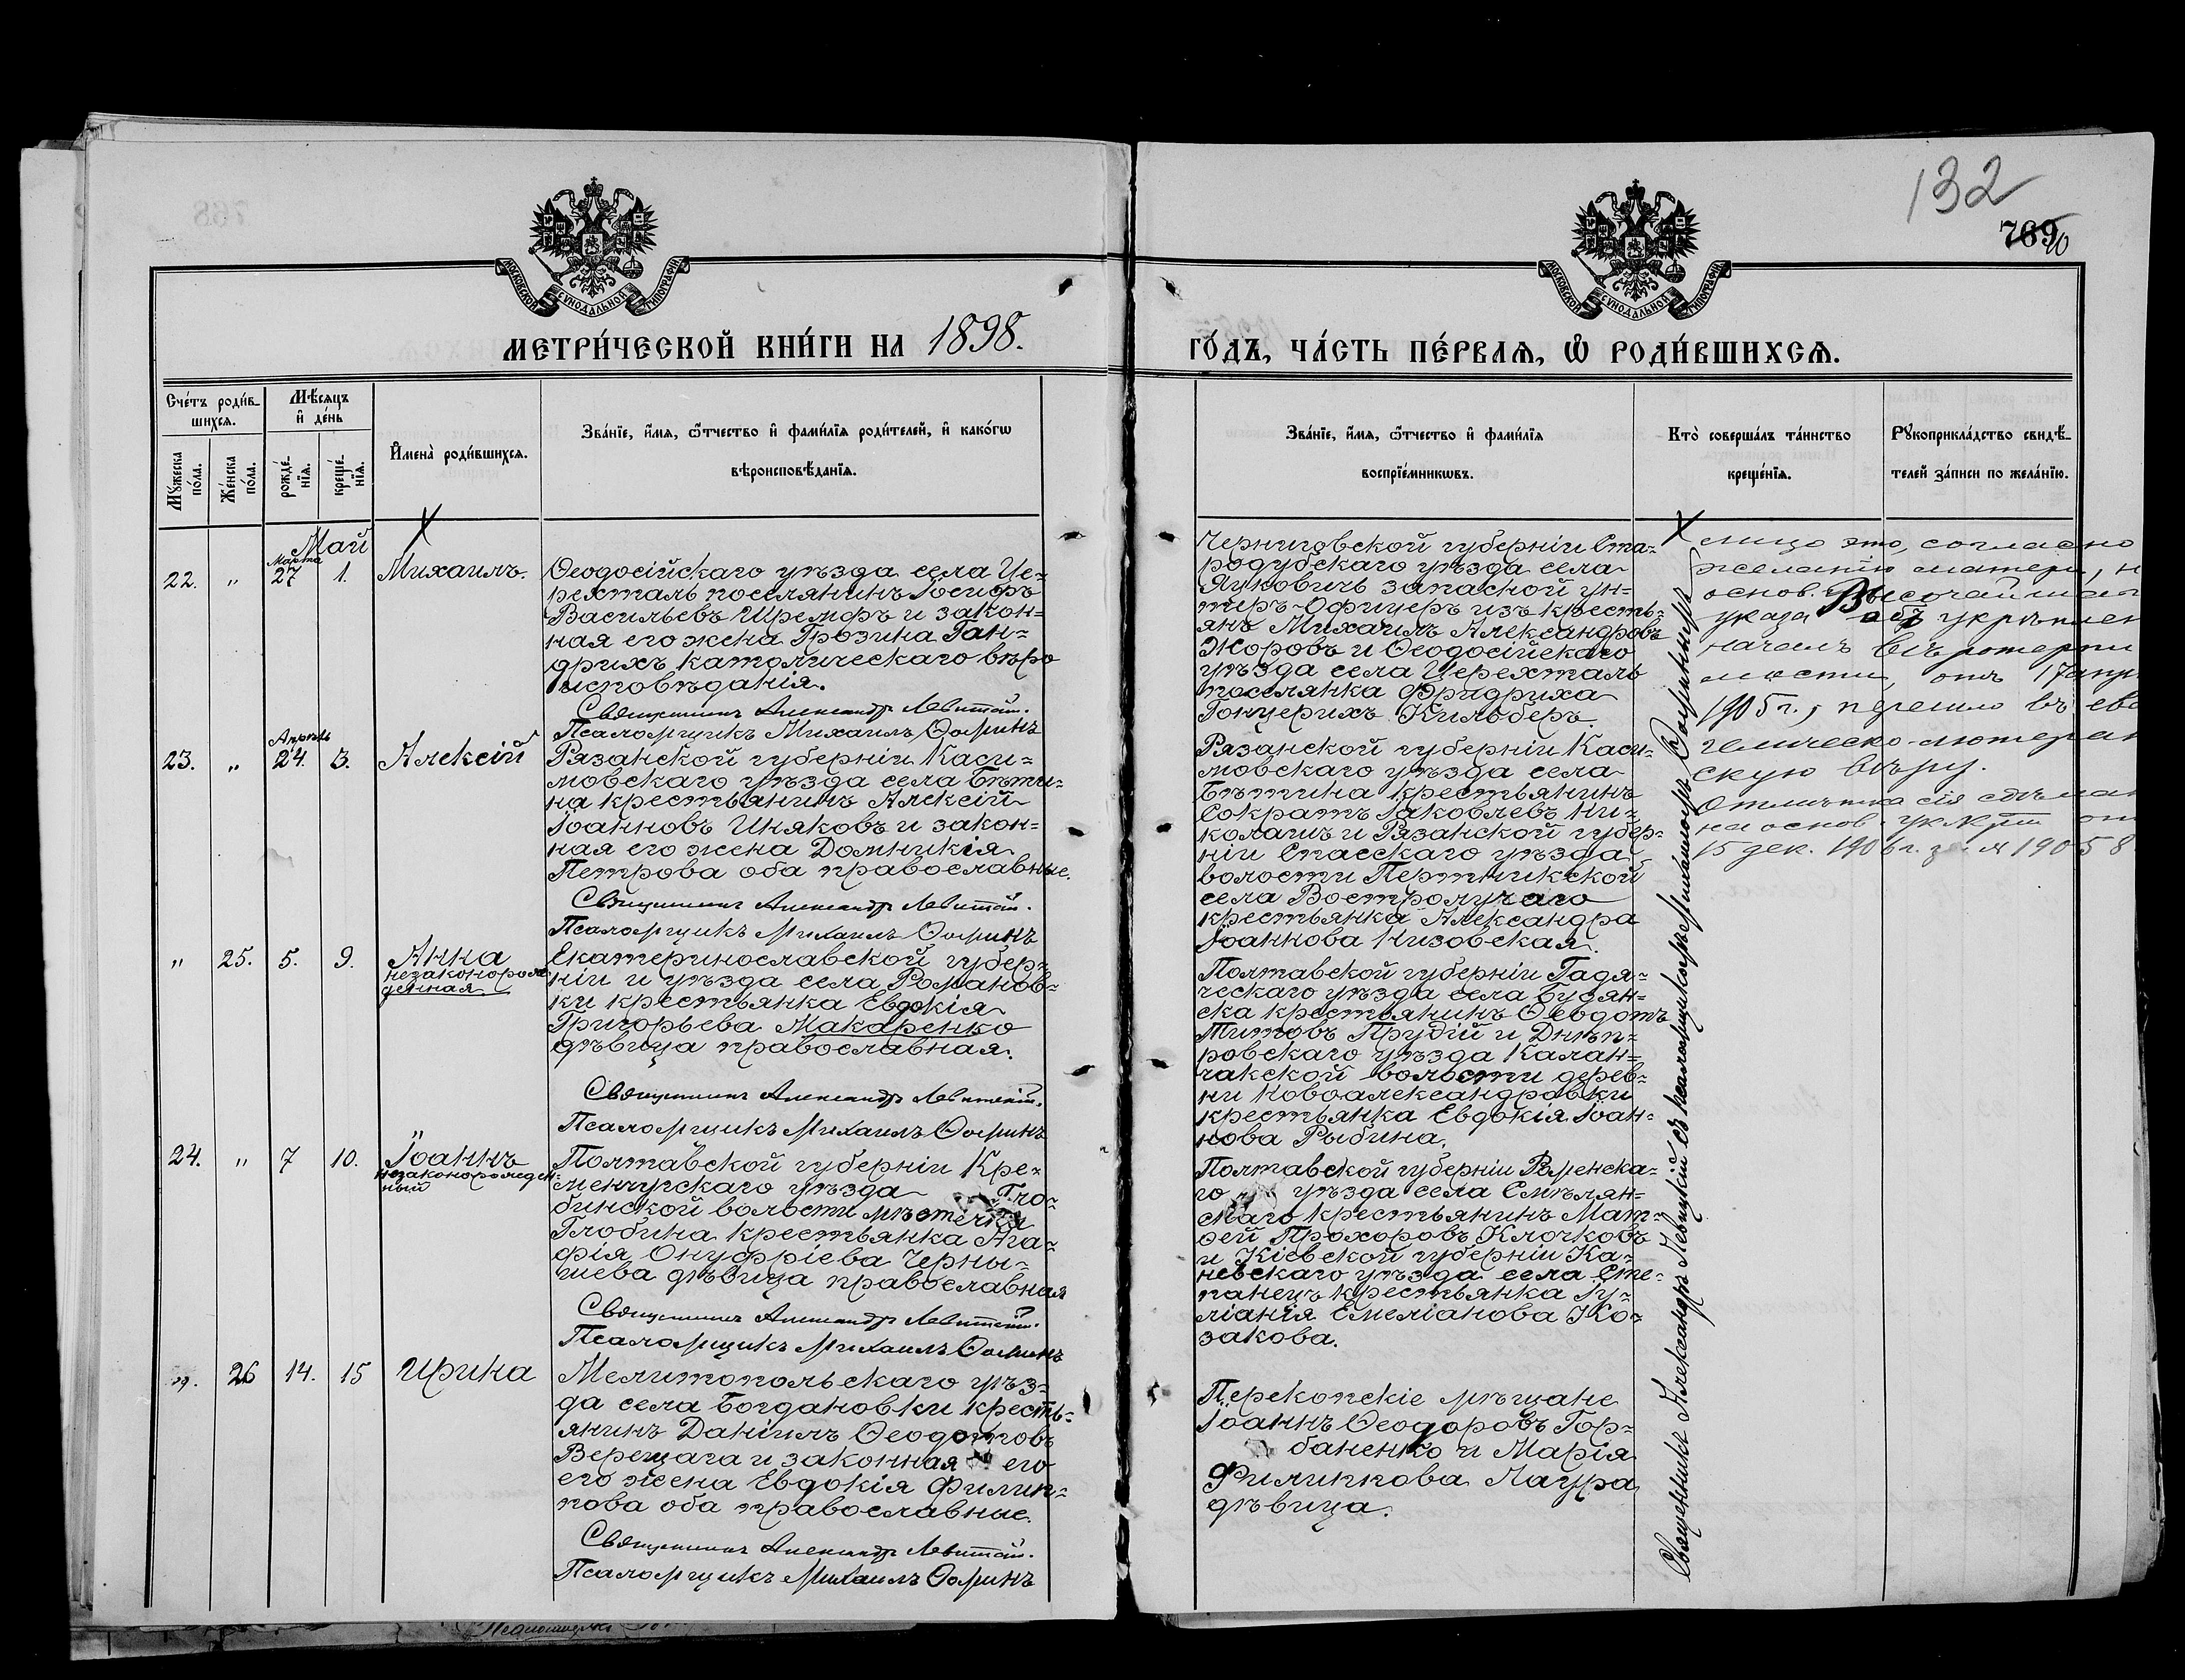 132
769
70
МОСКОВСКОЙ СУНОДАЛЬНОЙ ТИПОГРАФІИ
МОСКОВСКОЙ СУНОДАЛЬНОЙ ТИПОГРАФІИ
МЕТРИ́ЧЕСКОЙ КНИ́ГИ НА 1898.
ГО́ДЪ, ЧА́СТЬ ПЕ́РВАѦ, Ѡ РОДИ́ВШИХСѦ.
Сче́тъ роди́в-
шихсѧ.
Му́жеска по́ла.
Же́нска по́ла.
Мѣ́сѧцъ
и҆ де́нь
рожде́-
нїѧ.
креще́-
нїѧ.
И҆мена̀ роди́вшихсѧ.
Зва́нїе, и҆́мѧ, ѻ҆́тчество и҆ фами́лїѧ роди́телей, и҆ како́гѡ
вѣроисповѣ́данїѧ.
Зва́нїе, и҆́мѧ, ѻ҆́тчество и҆ фами́лїѧ
воспрїе́мникѡвъ.
Кто̀ соверша́лъ та́инство
креще́нїѧ.
Рꙋкоприкла́дство свидѣ́-
телей за́писи по жела́нїю.
Май
Марта
22. " 27 1. Михаилъ.
Ѳеодосійскаго уѣзда села Це-
рехталь поселянинъ Іосифъ
Васильевъ Шремфъ и закон=
ная его жена Грозина Ган-
дрихъ католическаго вѣро
исповѣданія.
Священникъ Александръ Левитскій.
Псаломщикъ Михаилъ Ѳоминъ
Черниговской губерніи Ста-
родубскаго уѣзда села
запасной ун-
теръ-офицеръ изъ кресть-
янъ Михаилъ Александровъ
Жоровъ и Ѳеодосійскаго
уѣзда села Церехталь
поселянка Фридриха
Кильберъ.
лицо это, согласно
желанію матери, н
основ. Высочайшаго
указа объ укрѣплен
началъ вѣротерпи
мости, отъ 17 апр
1905 г., перешло въ ева
гелическо-лютеран
скую вѣру.
Отмѣтка сія сдѣлан
на основ. ук. от
15 дек. 1906 г. за № 19058
Апрѣль
23. " 24. 3. Алексій
Рязанской губерніи Каси-
мовскаго уѣзда села Бѣти-
на крестьянинъ Алексій
Іоанновъ Иняковъ и закон=
ная его жена Домникія
Петрова оба православные.
Священникъ Александръ Левитскій.
Псаломщикъ Михаилъ Ѳоминъ
Рязанской губерніи Каси-
мовскаго уѣзда села
Бѣтина крестьянинъ
Сократъ Іаковлевъ Ни-
и Рязанской губер-
ніи Спасскаго уѣзда
волости
села
крестьянка Александра
Іоаннова Низовская.
" 25. 5. 9. Анна
незаконорож
денная
Екатеринославской губер-
ніи и уѣзда села Романов-
ки крестьянка Евдокія
Григорьева Макаренко
дѣвица православная.
Священникъ Александръ Левитскій.
Псаломщикъ Михаилъ Ѳоминъ
Полтавской губерніи Гадя-
ческаго уѣзда села Будян-
ска крестьянинъ Ѳеодотъ
Титовъ Прудій и Днѣп-
ровскаго уѣзда Калан-
чакской волости дерев-
ни Новоалександровки
крестьянка Евдокія Іоан-
нова Рыбина.
24. " 7 10. Іоаннъ
незаконорожден-
ный
Полтавской губерніи Кре-
менчугскаго уѣзда Гло-
бинской волости мѣстечка
Глобина крестьянка Ага-
фія Онуфріева Черны-
шева дѣвица православная
Священникъ Александръ Левитскій.
Псаломщикъ Михаилъ Ѳоминъ
Полтавской губерніи Роменска-
го уѣзда села Смѣлян-
скаго крестьянинъ Мат-
ѳей Прохоровъ Клочковъ
и Кіевской губерніи Ка-
невскаго уѣзда села Сте-
панецъ крестьянка Іу-
ліанія Емеліанова Ко-
закова.
26 14. 15 Ирина
Мелитопольскаго уѣз-
да села Богдановки кресть-
янинъ Даніилъ Ѳеодотовъ
Верещага и законная его
его жена Евдокія Филип-
пова оба православные.
Священникъ Александръ Левитскій.
Псаломщикъ Михаилъ Ѳоминъ
Перекопскіе мѣщане
Іоаннъ Ѳеодоровъ Гор-
баненко и Марія
Филиппова Лаура
дѣвица.
Священникъ Александръ Левицкій съ псаломщикомъ Михаиломъ Ѳоминымъ